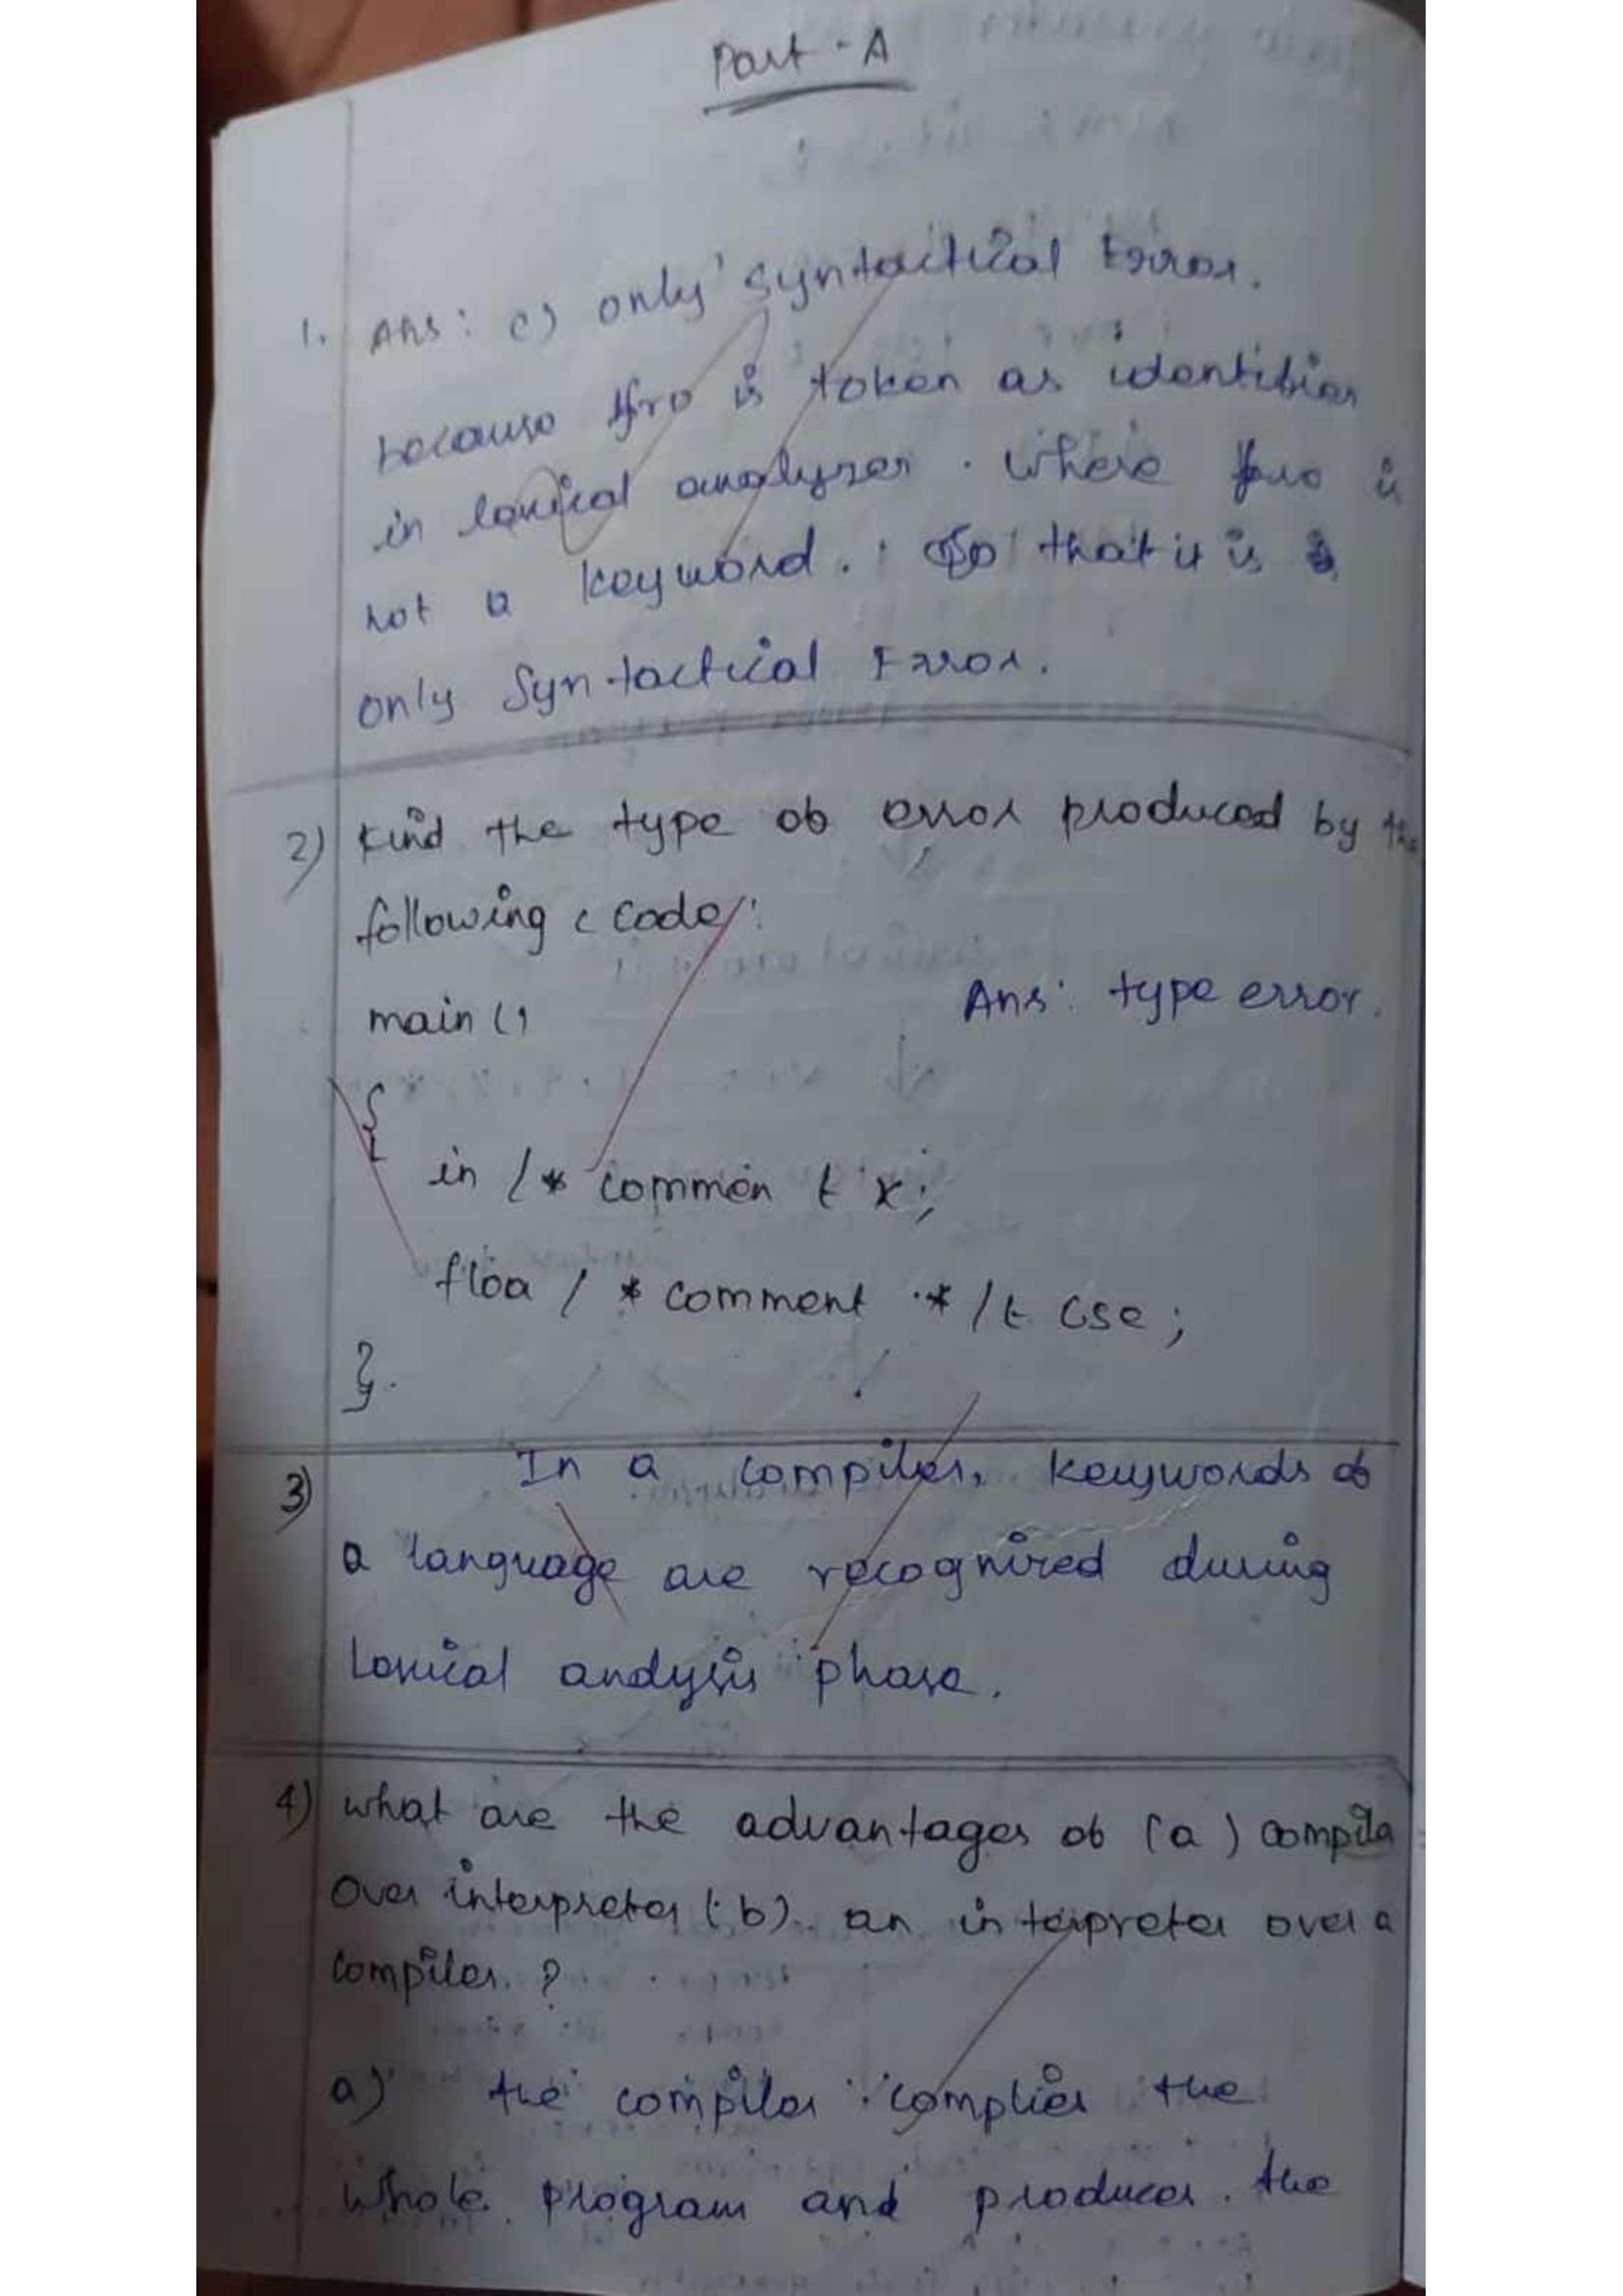 Part - A
1. Ans: c) only syntactical Error.
because fro is token as identifier
in lexical analyzer. Where fro is
not a keyword. So that it is
only Syntactical Error.
2) Find the type of error produced by the
following c code:
main ()
Ans: type error.
{
in /* common t x;
floa / * comment * /t cse;
}.
3) In a compiler, keywords of
a language are recognized during
Lexical analysis phase.
4) what are the advantages of (a) compila
over interpreter (b) an interpreter over a
compiler. ?
a) the compiler complies the
whole program and produces the